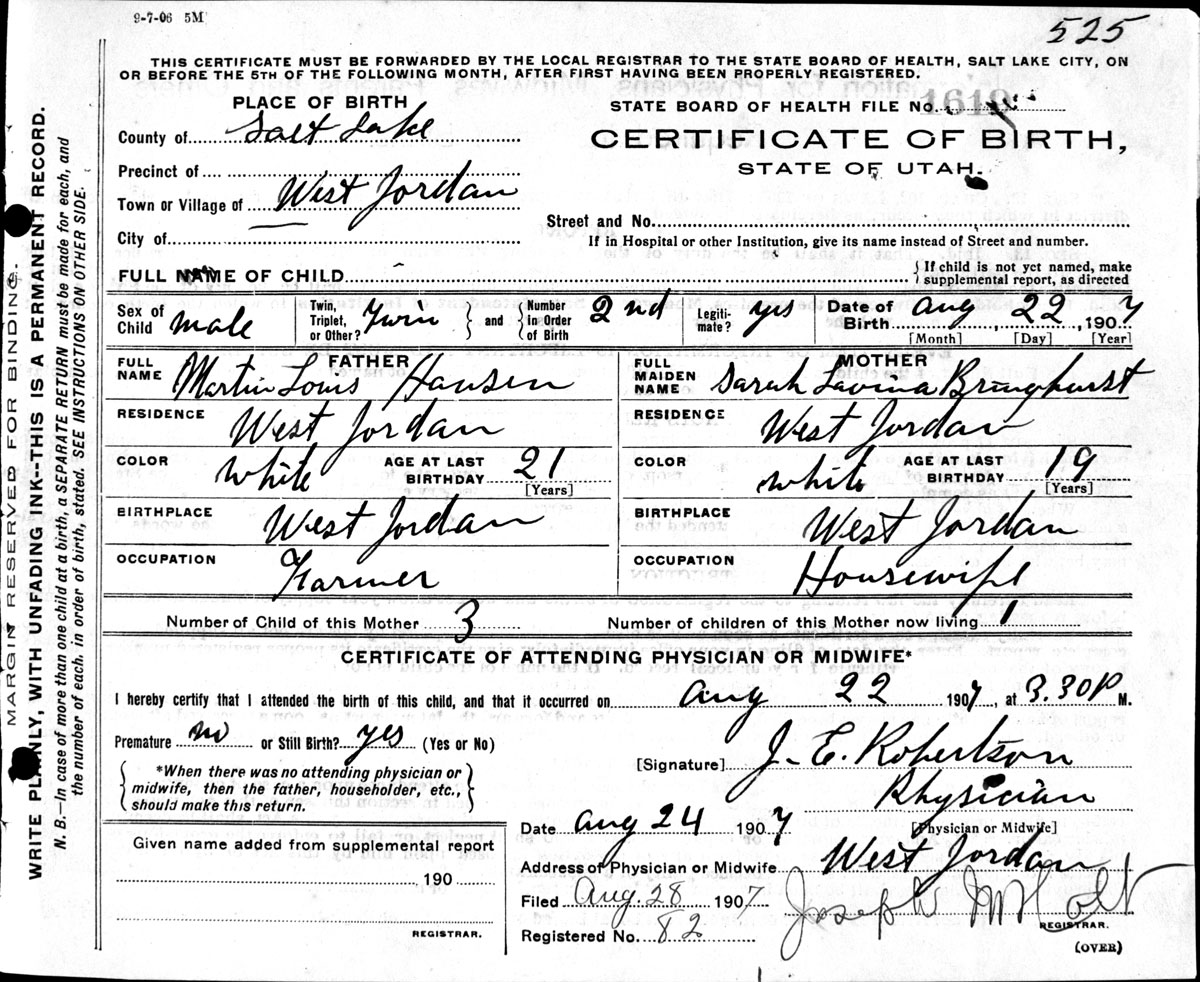 9-7-06 5M
525
THIS CERTIFICATE MUST BE FORWARDED BY THE LOCAL REGISTRAR TO THE STATE BOARD OF HEALTH, SALT LAKE CITY, ON
OR BEFORE THE 5TH OF THE FOLLOWING MONTH, AFTER FIRST HAVING BEEN PROPERLY REGISTERED.
PLACE OF BIRTH
STATE BOARD OF HEALTH FILE NO.
County of Salt Lake
CERTIFICATE OF BIRTH,
STATE OF UTAH.
Precinct of
Town or Village of West Jordan
Street and No.
City of
If in Hospital or other Institution, give its name instead of Street and number.
FULL NAME OF CHILD
{ If child is not yet named, make
supplemental report, as directed
Sex of Child male
Twin, Triplet, or Other? Twin } and { Number in Order of Birth 2nd
Legiti-mate? yes
Date of Birth Aug, 22, 1907
[Month] [Day] [Year]
FATHER
FULL NAME Martin Louis Hansen
MOTHER
FULL MAIDEN NAME Sarah Lavina Bringhurst
RESIDENCE West Jordan
RESIDENCE West Jordan
COLOR white AGE AT LAST BIRTHDAY 21 [Years]
COLOR white AGE AT LAST BIRTHDAY 19 [Years]
BIRTHPLACE West Jordan
BIRTHPLACE West Jordan
OCCUPATION Farmer
OCCUPATION Housewife
Number of Child of this Mother 3
Number of children of this Mother now living 1
CERTIFICATE OF ATTENDING PHYSICIAN OR MIDWIFE*
I hereby certify that I attended the birth of this child, and that it occurred on Aug 22 1907, at 3.30 P M.
Premature no or Still Birth? yes (Yes or No)
{ *When there was no attending physician or
midwife, then the father, householder, etc.,
should make this return. }
[Signature] J. E. Robertson
Physician
[Physician or Midwife]
Date Aug 24 1907
Given name added from supplemental report
190
REGISTRAR.
Address of Physician or Midwife West Jordan
Filed Aug. 28 1907
Joseph M Holt
REGISTRAR.
Registered No. 82
(OVER)
MARGIN RESERVED FOR BINDING.
WRITE PLAINLY, WITH UNFADING INK--THIS IS A PERMANENT RECORD.
N. B.—In case of more than one child at a birth, a SEPARATE RETURN must be made for each, and
the number of each, in order of birth, stated. SEE INSTRUCTIONS ON OTHER SIDE.